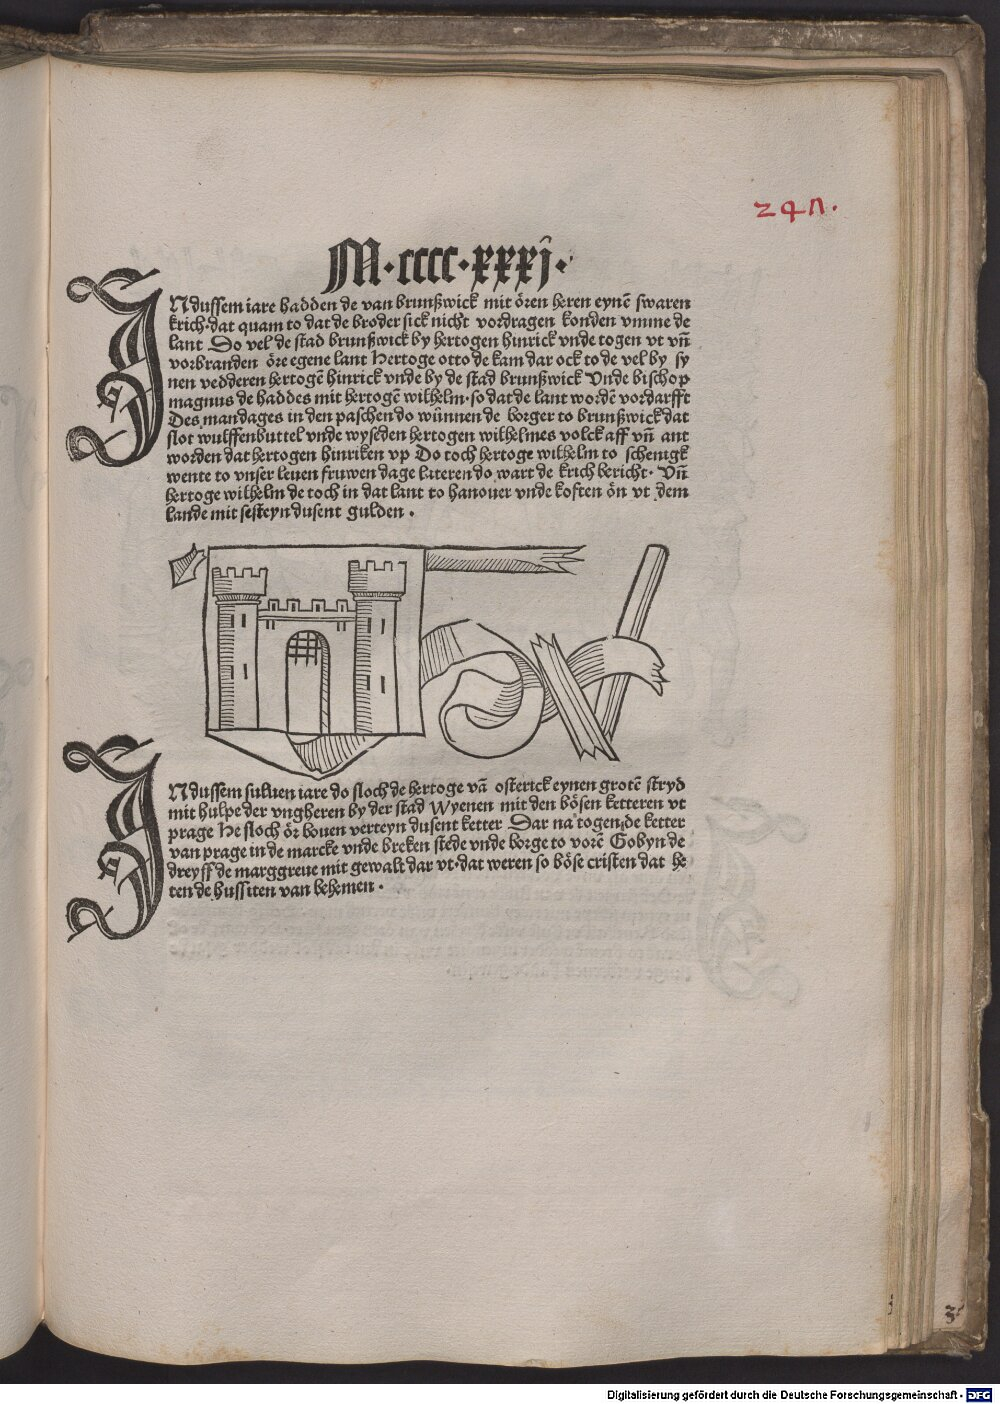 247.
M·cccc·xxxj·
INdussem iare hadden de van brunßwick mit ören heren eynē swaren
krich·dat quam to dat de broder sick nicht vordragen konden vmme de
lant So vel de stad brunßwick by hertogen hinrick vnde togen vt vñ
vorbranden öre egene lant Hertoge otto de kam dar ock to de vel by sy
nen vedderen hertogē hinrick vnde by de stad brunßwick Vnde bischop
magnus de haddes mit hertogē wilhelm·so dat de lant wordē vordarfft
Des mandages in den paschen do wünnen de borger to brunßwick dat
slot wulffenbuttel vnde wyseden hertogen wilhelmes volck aff vñ ant
worden dat hertogen hinriken vp Do toch hertoge wilhelm to schenigk
wente to vnser leuen fruwen dage lateren do wart de krich bericht· Vñ
hertoge wilhelm de toch in dat lant to hanouer vnde koften ön vt dem
lande mit sesteyn dusent gulden ·
INdussem suluen iare do sloch de hertoge vā osterick eynen grotē stryd
mit hulpe der vngheren by der stad Wyenen mit den bösen ketteren vt
prage He sloch ör bouen verteyn dusent ketter Dar na togen de ketter
van prage in de marcke vnde breken stede vnde borge to vorē Gobyn de
dreyff de marggreue mit gewalt dar vt·dat weren so böse cristen dat he
ten de hussiten van behemen ·
Digitalisierung gefördert durch die Deutsche Forschungsgemeinschaft · DFG